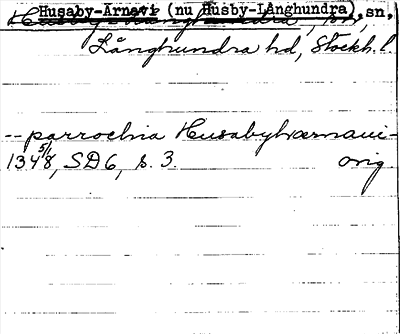 Husaby-Arnavi (nu Husby-Långhundra), sn,
Långhundra hd, Stockh. l.
-- parrochia Husabyhærnaui-
1348 5/1, SD 6, s. 3. orig.